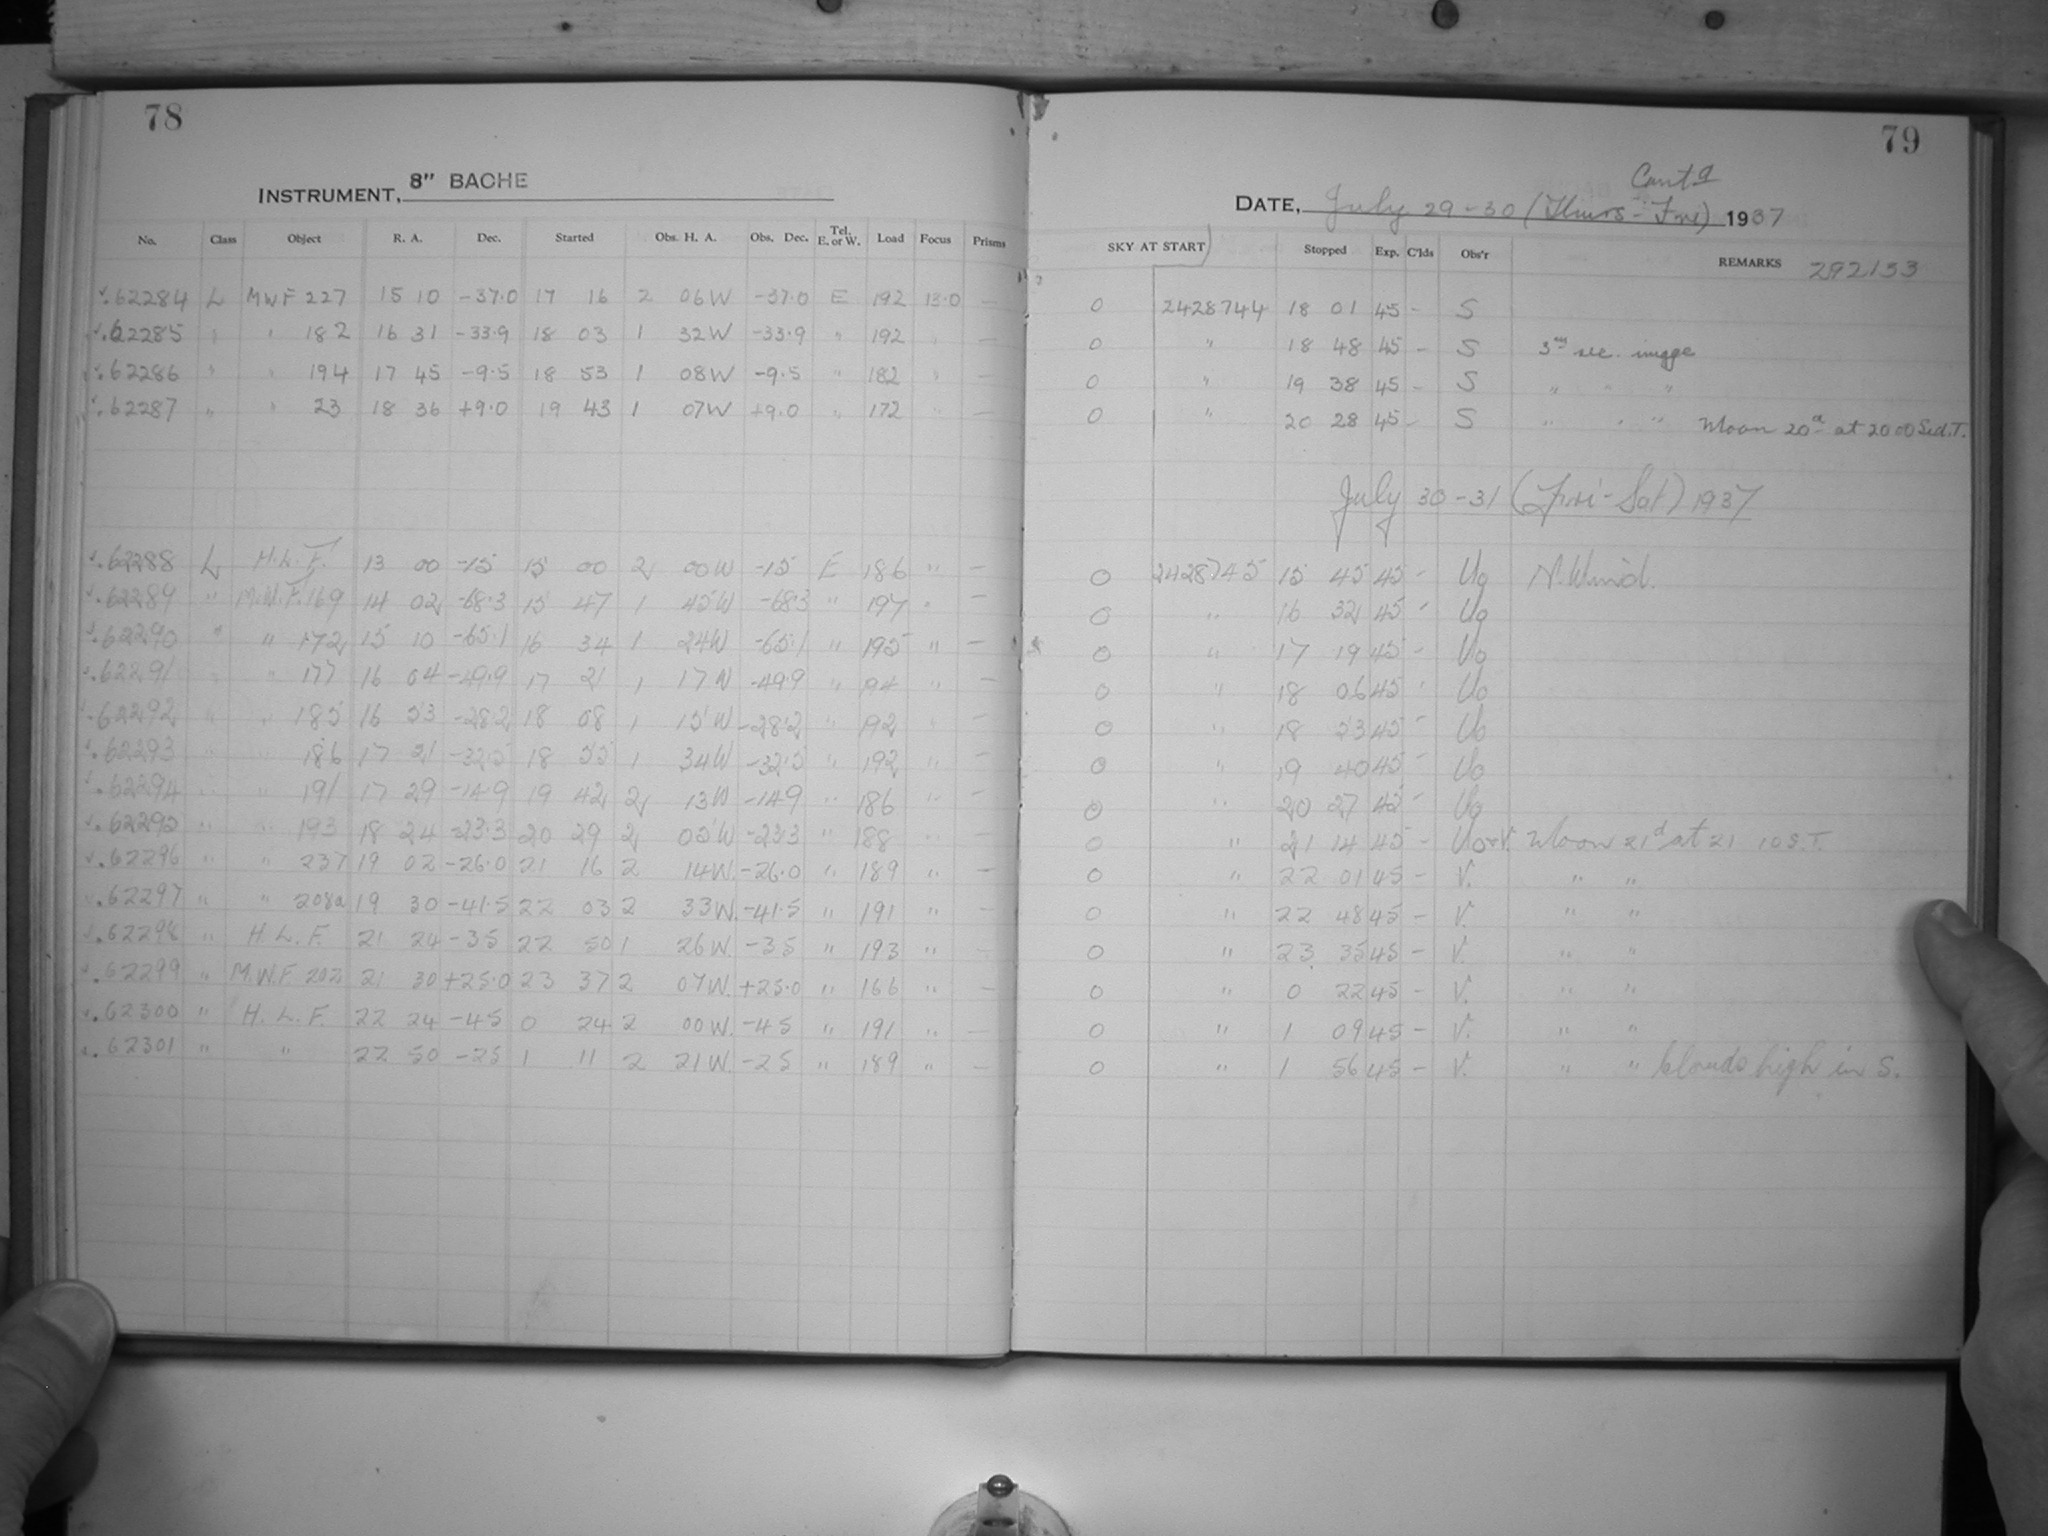 78
INSTRUMENT, 8" BACHE
No. Class Object R. A. Dec. Started Obs. H. A. Obs. Dec. Tel. E. or W. Load Focus Prisms
62284 L M.W.F 227 15 10 -37.0 17 16 2 06W -37.0 E 192 13.0 —
62285 " " 182 16 31 -33.9 18 03 1 32W -33.9 " 192 " —
62286 " " 194 17 45 -9.5 18 53 1 08W -9.5 " 182 " —
62287 " " 23 18 36 +9.0 19 43 1 07W +9.0 " 172 " —
62288 L H.L.F. 13 00 -15 15 00 2 00W -15 E 186 " —
62289 " M.W.F. 169 14 02 -68.3 15 47 1 45W -68.3 " 197 " —
62290 " " 172 15 10 -65.1 16 34 1 24W -65.1 " 195 " —
62291 " " 177 16 04 -49.9 17 21 1 17W -49.9 " 194 " —
62292 " " 185 16 53 -28.2 18 08 1 15W -28.2 " 192 " —
62293 " " 186 17 21 -32.5 18 55 1 34W -32.5 " 192 " —
62294 " " 191 17 29 -14.9 19 42 2 13W -14.9 " 186 " —
62295 " " 193 18 24 -23.3 20 29 2 05W -23.3 " 188 " —
62296 " " 237 19 02 -26.0 21 16 2 14W. -26.0 " 189 " —
62297 " " 208a 19 30 -41.5 22 03 2 33W. -41.5 " 191 " —
62298 " H.L.F. 21 24 -35 22 50 1 26W. -35 " 193 " —
62299 " M.W.F. 202 21 30 +25.0 23 37 2 07W. +25.0 " 166 " —
62300 " H.L.F. 22 24 -45 0 24 2 00W. -45 " 191 " —
62301 " " 22 50 -25 1 11 2 21W. -25 " 189 " —
79
Cont'd
DATE, July 29-30 (Thurs-Fri) 1937
SKY AT START Stopped Exp. C'lds Obs'r REMARKS 292133
0 2428744 18 01 45 - S
0 " 18 48 45 - S 3" sec. image
0 " 19 38 45 - S " " "
0 " 20 28 45 - S " " " Moon 20d at 20 00 Sid.T.
July 30-31 (Fri-Sat) 1937
0 2428745 15 45 45 - Uo N. Wind.
0 " 16 32 45 - Uo
0 " 17 19 45 - Uo
0 " 18 06 45 - Uo
0 " 18 53 45 - Uo
0 " 19 40 45 - Uo
0 " 20 27 45 - Uo
0 " 21 14 45 - Uo+V. Moon 21d at 21 10 S.T.
0 " 22 01 45 - V. " "
0 " 22 48 45 - V. " "
0 " 23 35 45 - V. " "
0 " 0 22 45 - V. " "
0 " 1 09 45 - V. " "
0 " 1 56 45 - V. " " Clouds high in S.